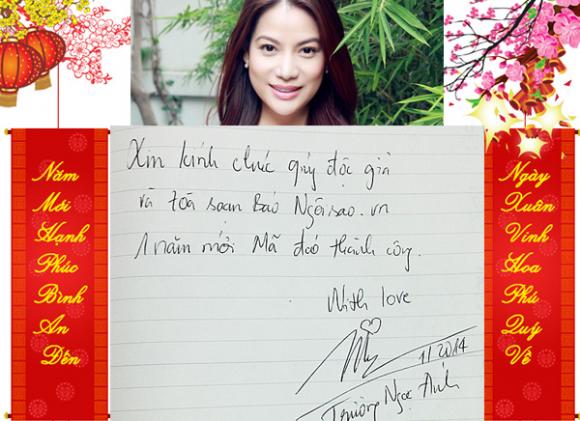 Năm
Mới
Hạnh
Phúc
Bình
An
Đến
Xin kính chúc quý độc giả
và toà soạn Báo Ngôisao.vn
1 năm mới Mã đáo thành công.
With love
1/2014
Trương Ngọc Ánh
Ngày
Xuân
Vinh
Hoa
Phú
Quý
Về